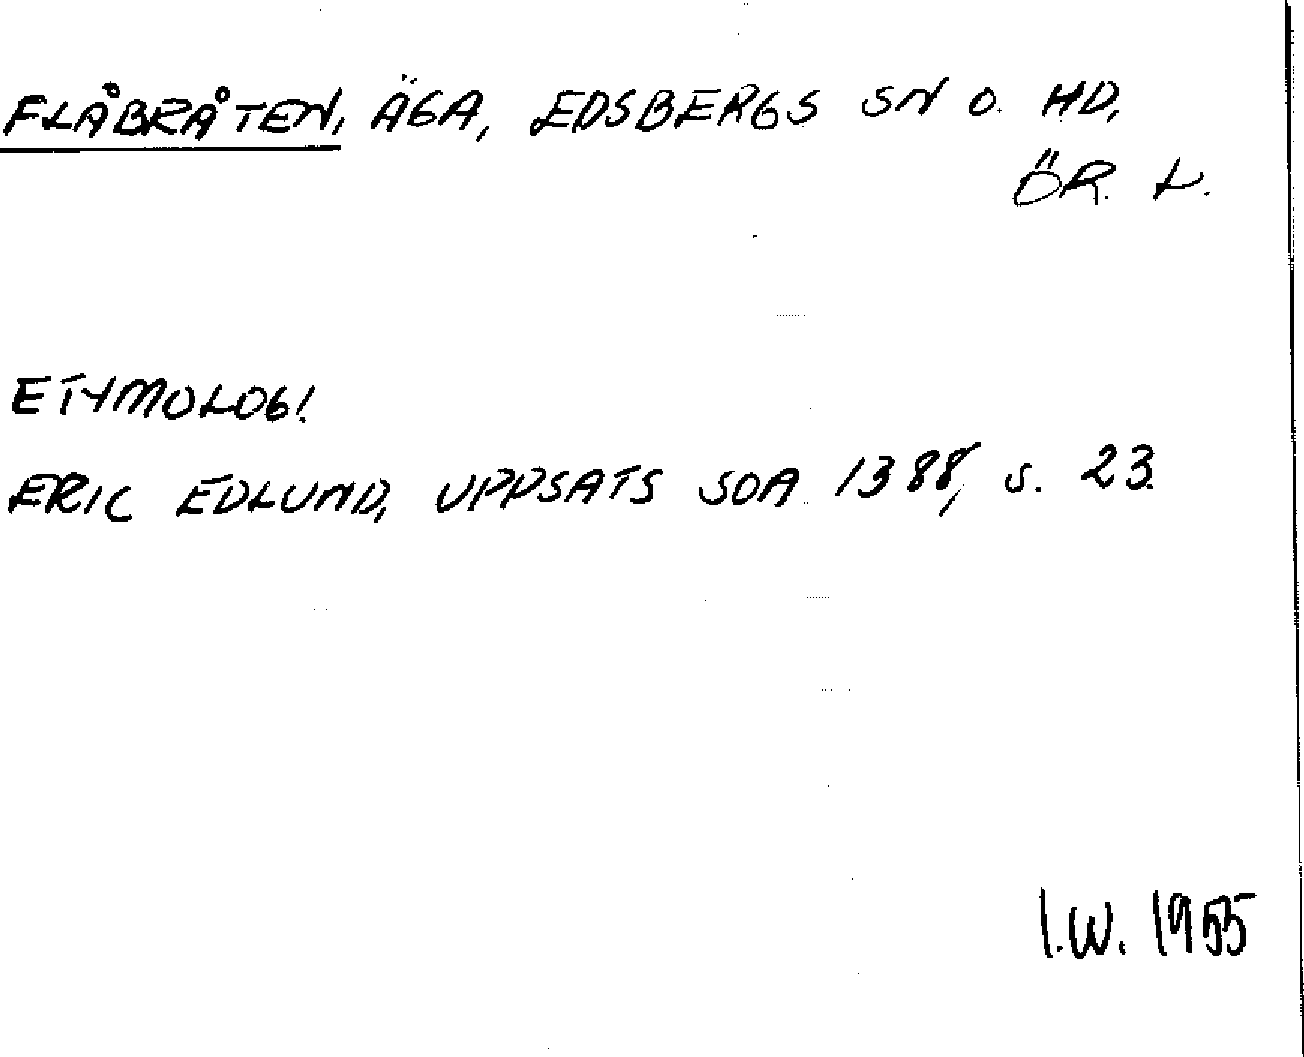 FLÅBRÅTEN, ÄGA, EDSBERGS SN O. HD,
ÖR. L.
ETYMOLOGI.
ERIC EDLUND, UPPSATS SOA 1388, s. 23.
I.W. 1955